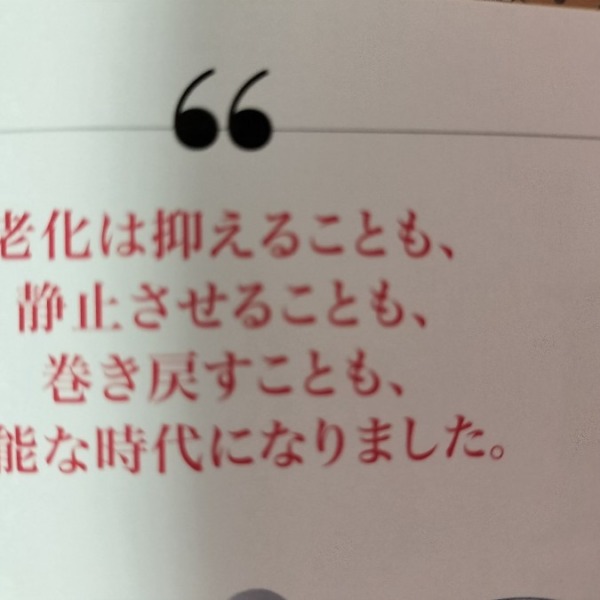 “
老化は抑えることも、
静止させることも、
巻き戻すことも、
能な時代になりました。